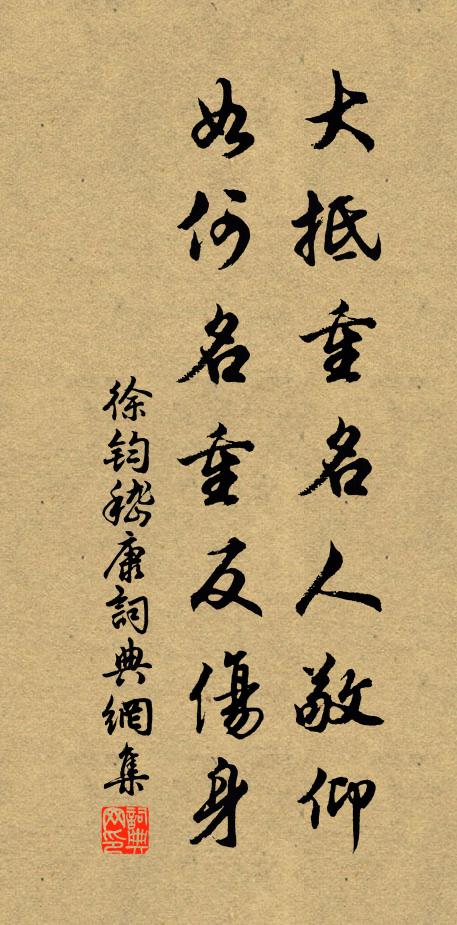 大抵重名人敬仰
如何名重反傷身
徐鈞嵇康詞典網集
詞典网印